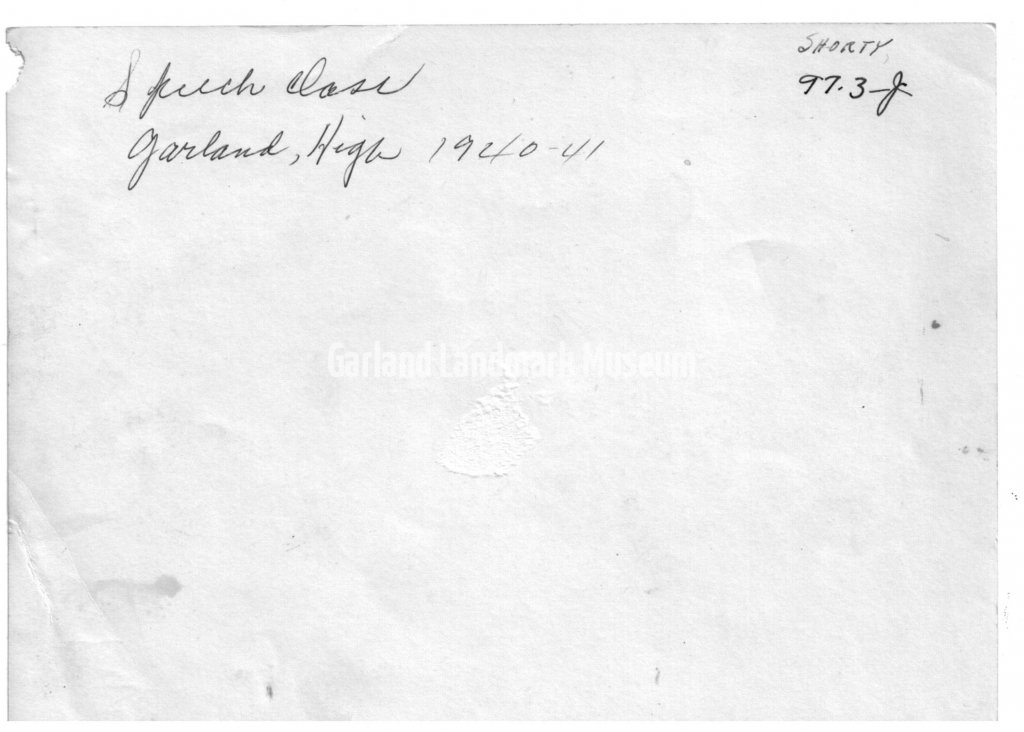 SHORTY
97.3-J
Speech Class
Garland, High 1940-41
Garland Landmark Museum